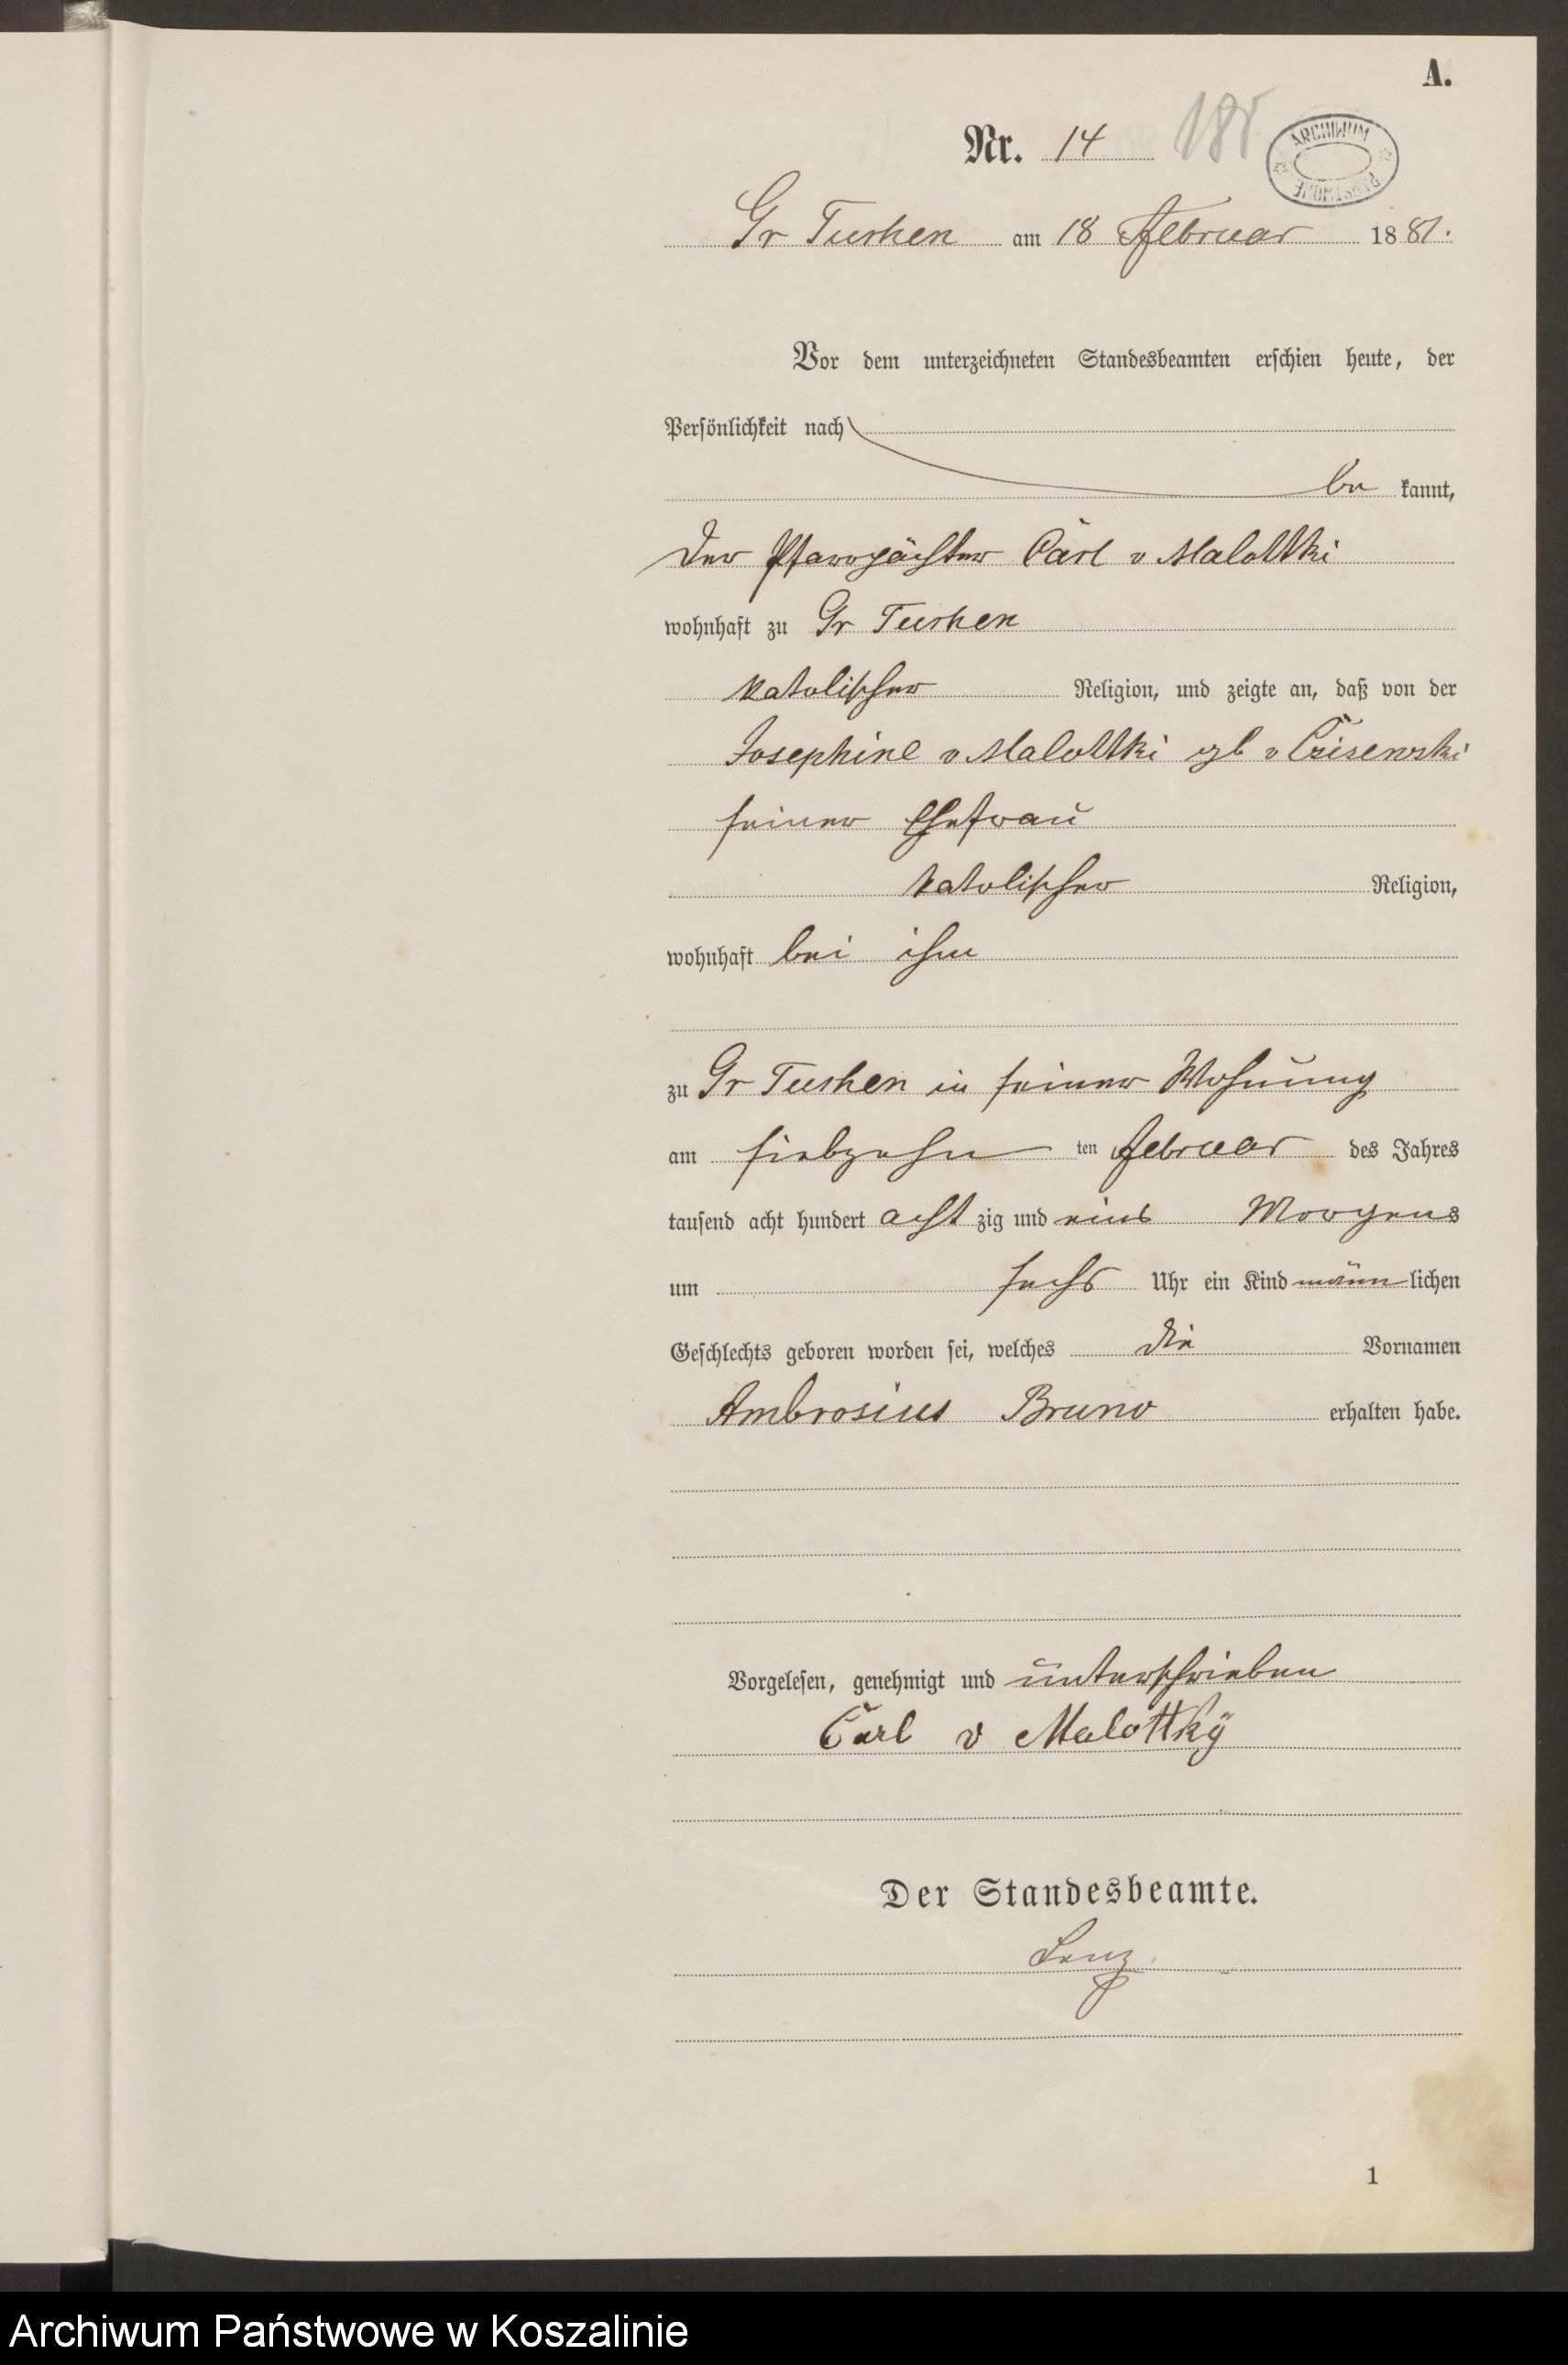 A.
Nr. 14
ARCHIWUM PAŃSTWOWE
Gr Tuchen am 18 Februar 1881.
Vor dem unterzeichneten Standesbeamten erschien heute, der
Persönlichkeit nach
be kannt,
der Pfarrpächter Carl v Malottki
wohnhaft zu Gr Tuchen
katolischer Religion, und zeigte an, daß von der
Josephine v Malottki geb v Czisewski
seiner Ehefrau
katolischer Religion,
wohnhaft bei ihm
zu Gr Tuchen in seiner Wohnung
am siebzehn ten Februar des Jahres
tausend acht hundert acht zig und eins Morgens
um sechs Uhr ein Kind männ lichen
Geschlechts geboren worden sei, welches die Vornamen
Ambrosius Bruno erhalten habe.
Vorgelesen, genehmigt und unterschrieben
Carl v Malottky
Der Standesbeamte.
Lenz
1
Archiwum Państwowe w Koszalinie